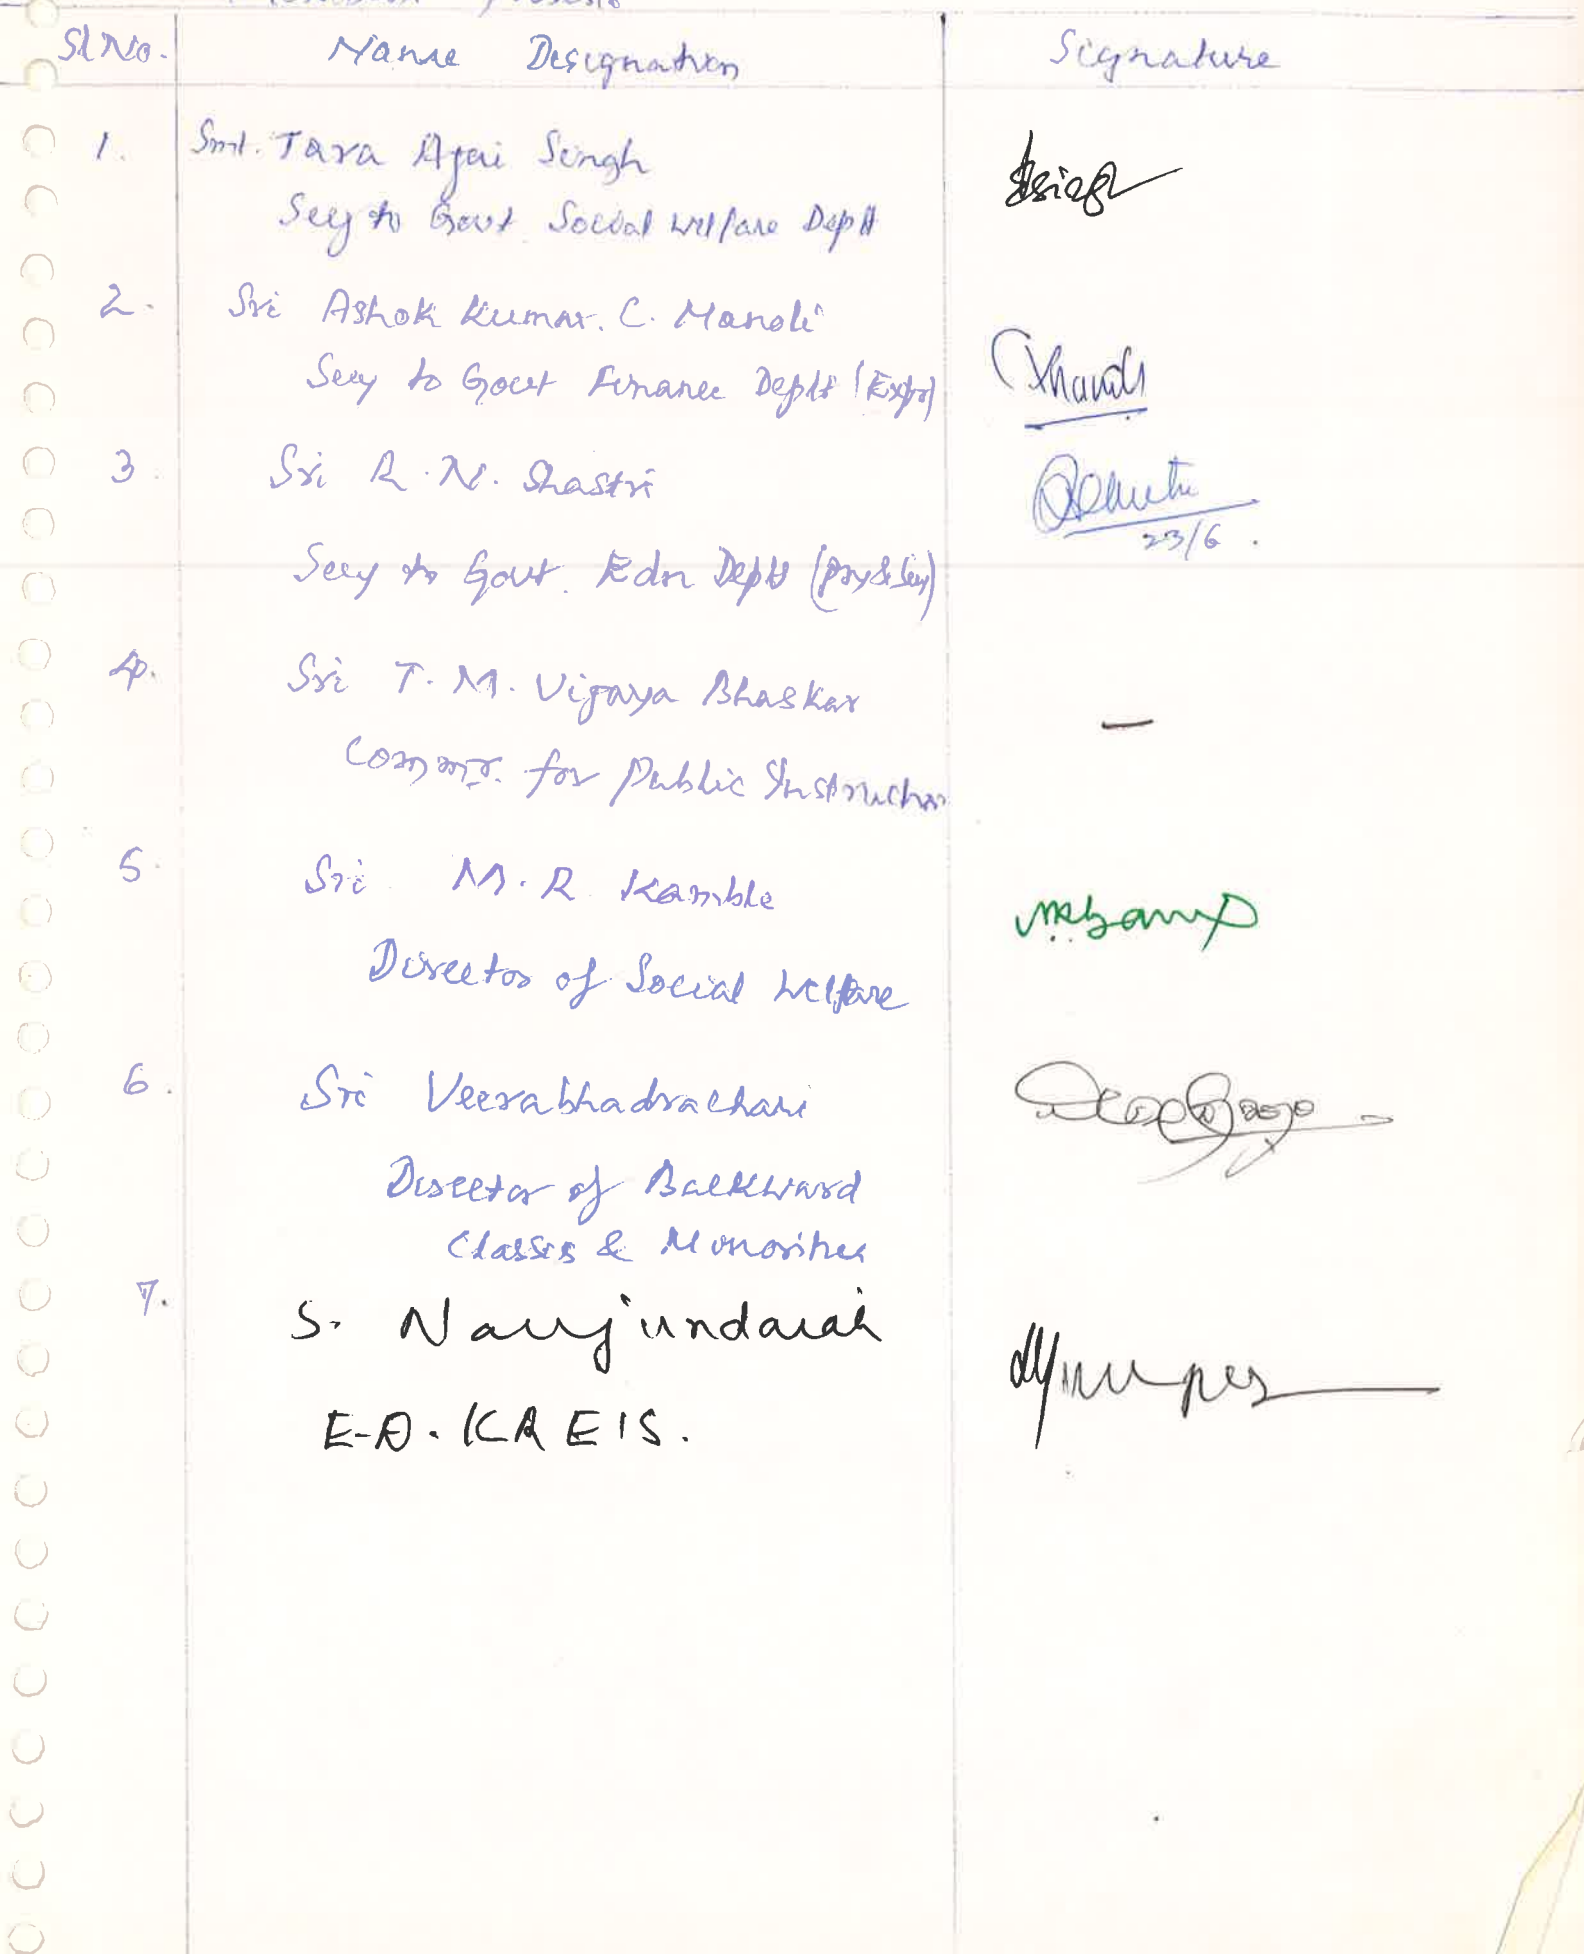 Sl No. Name Designation Signature
1. Smt. Tara Ajai Singh
Secy to Govt Social Welfare Deptt
2. Sri Ashok Kumar. C. Manoli
Secy to Govt Finance Deptt (Expr)
3 Sri R. N. Shastri
23/6.
Secy to Govt. Edn Deptt (Pry & Sey)
4. Sri T. M. Vijaya Bhaskar
—
Commr. for Public Instruction
5. Sri M. R Kamble
Director of Social Welfare
6. Sri Veerabhadrachari
Director of Backward
Classes & Minorities
7. S. Nanjundaiah
E-D. KREIS.